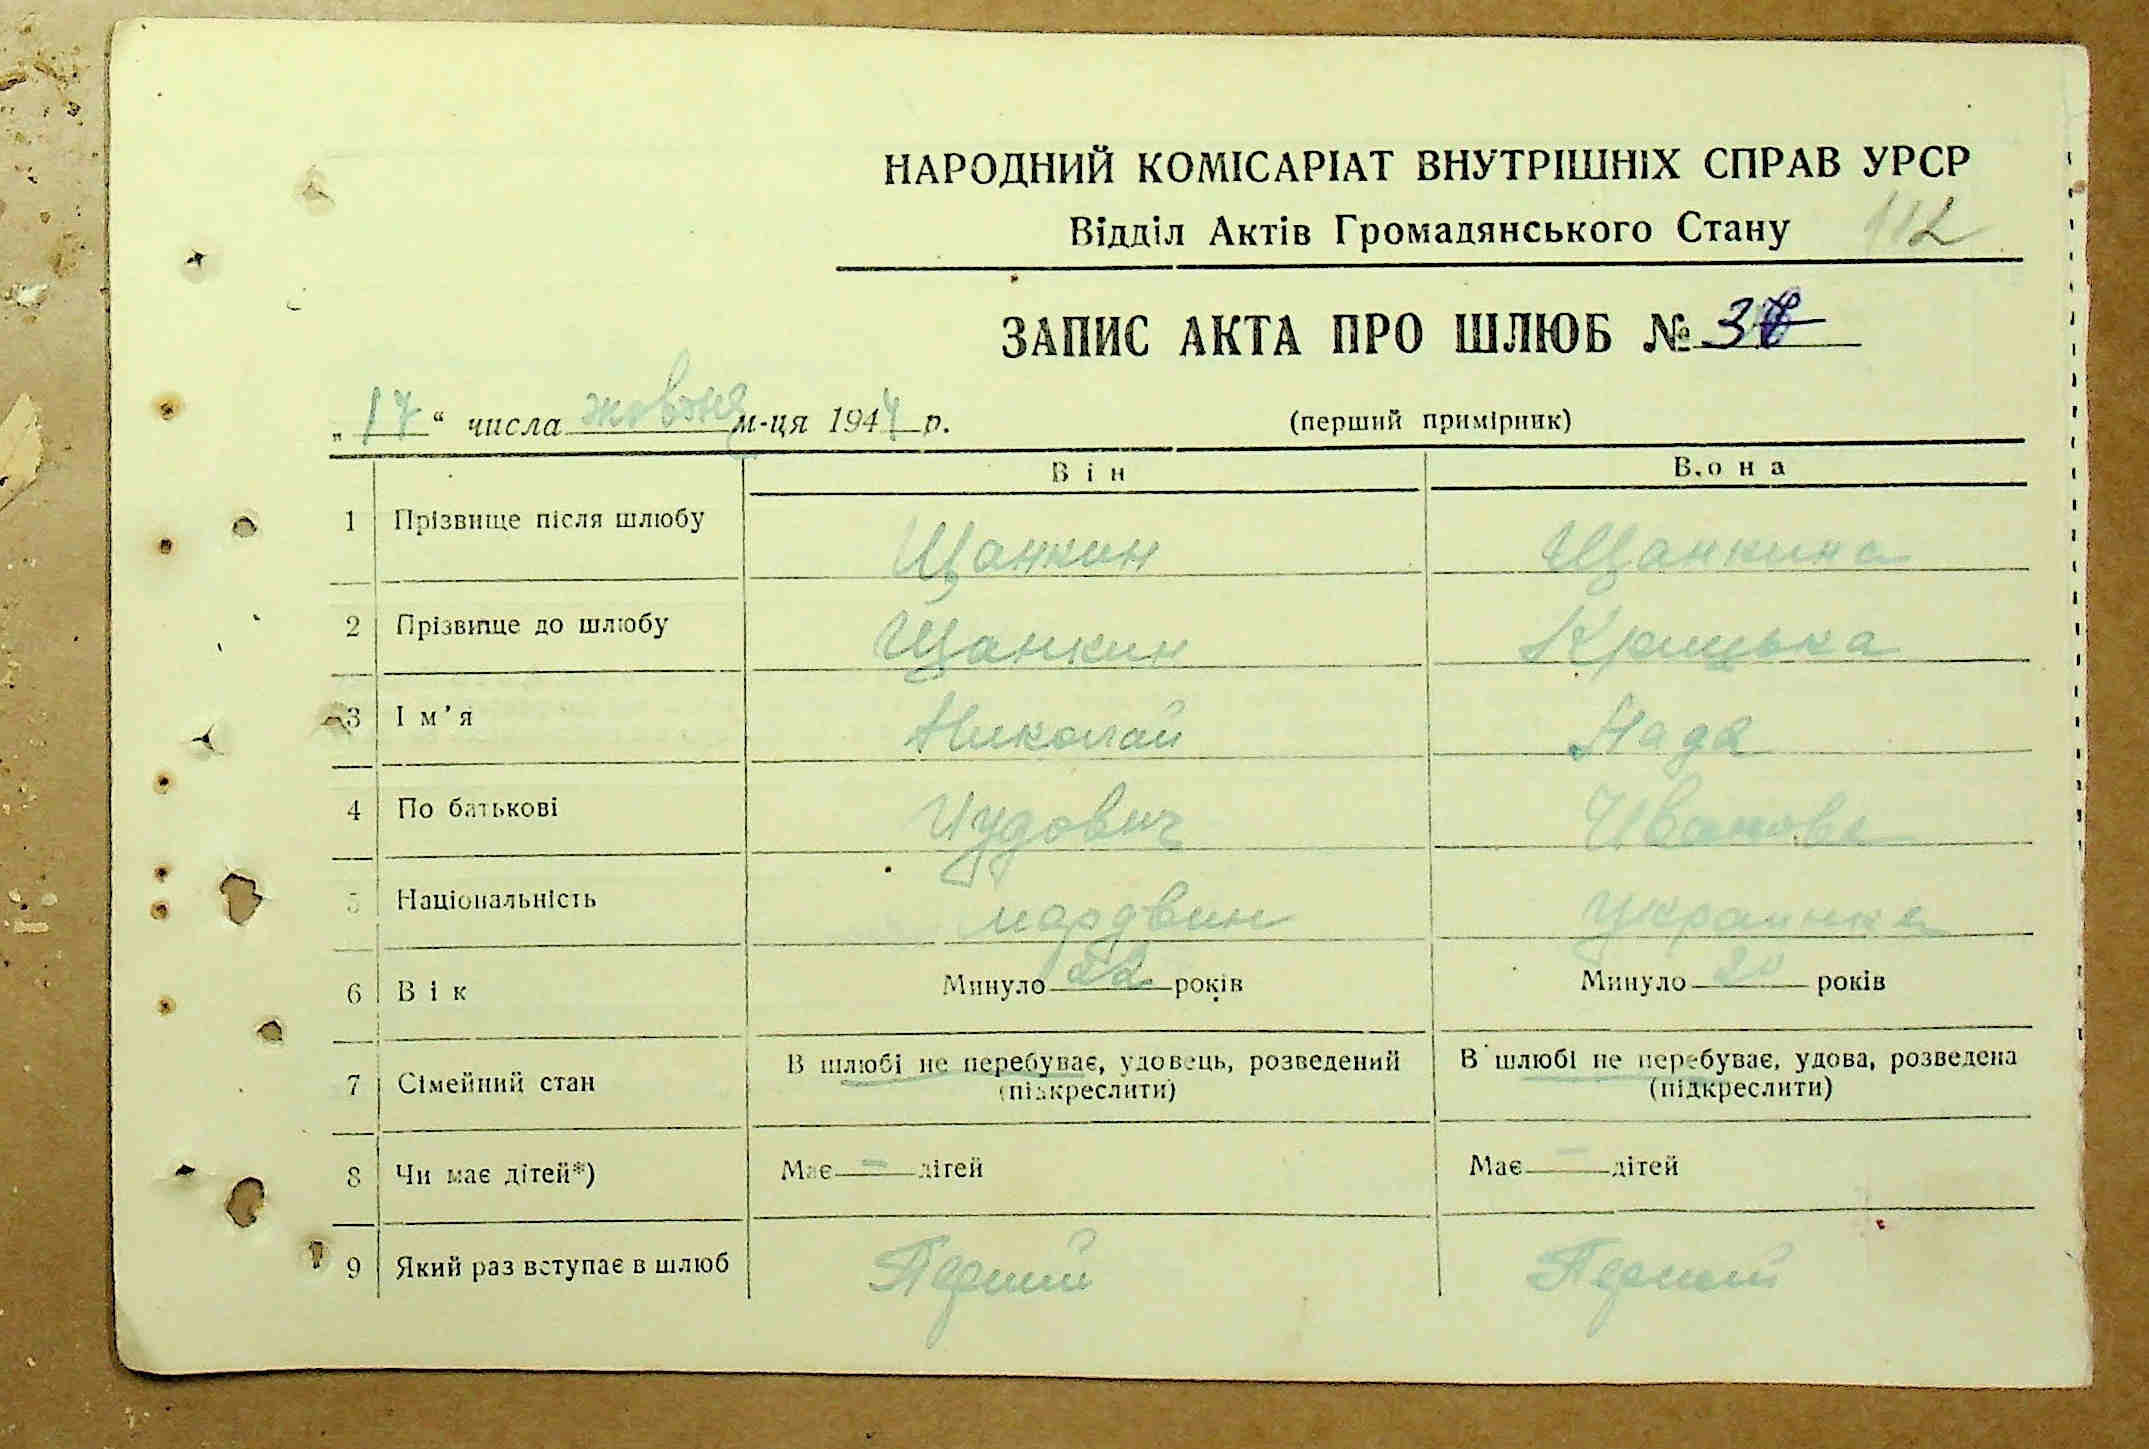 НАРОДНИЙ КОМІСАРІАТ ВНУТРІШНІХ СПРАВ УРСР
Відділ Актів Громадянського Стану 112
ЗАПИС АКТА ПРО ШЛЮБ № 37
„17“ числа жовтня м-ця 1944 р. (перший примірник)
Він Вона
1 Прізвище після шлюбу Щанкин Щанкина
2 Прізвище до шлюбу Щанкин Крицька
3 Ім’я Николай Надя
4 По батькові Иудович Иванова
5 Національність мордвин украинка
6 Вік Минуло 22 років Минуло 20 років
7 Сімейний стан В шлюбі не перебуває, удовець, розведений (підкреслити) В шлюбі не перебуває, удова, розведена (підкреслити)
8 Чи має дітей*) Має — дітей Має — дітей
9 Який раз вступає в шлюб Перший Перший